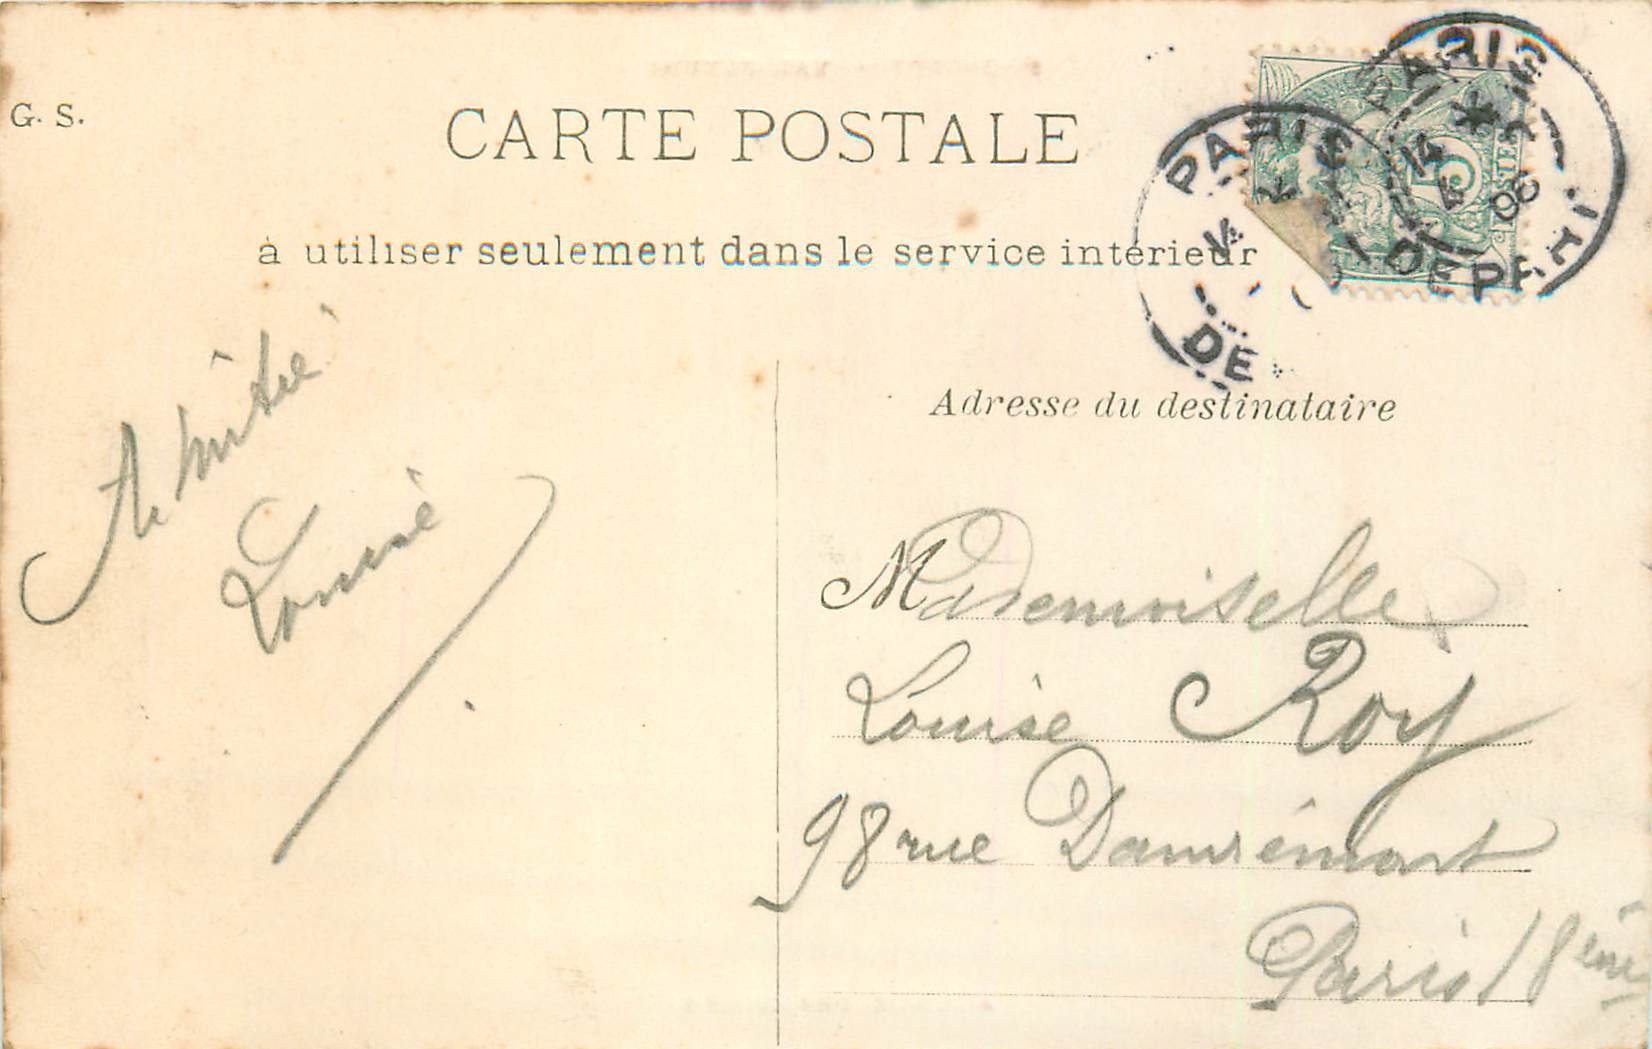 G. S.
CARTE POSTALE
à utiliser seulement dans le service intérieur
PARIS
DE
PARIS
DEPART
5
Adresse du destinataire
Amitié
Louise
Mademoiselle
Louise Roy
98 rue Damrémont
Paris 18ème